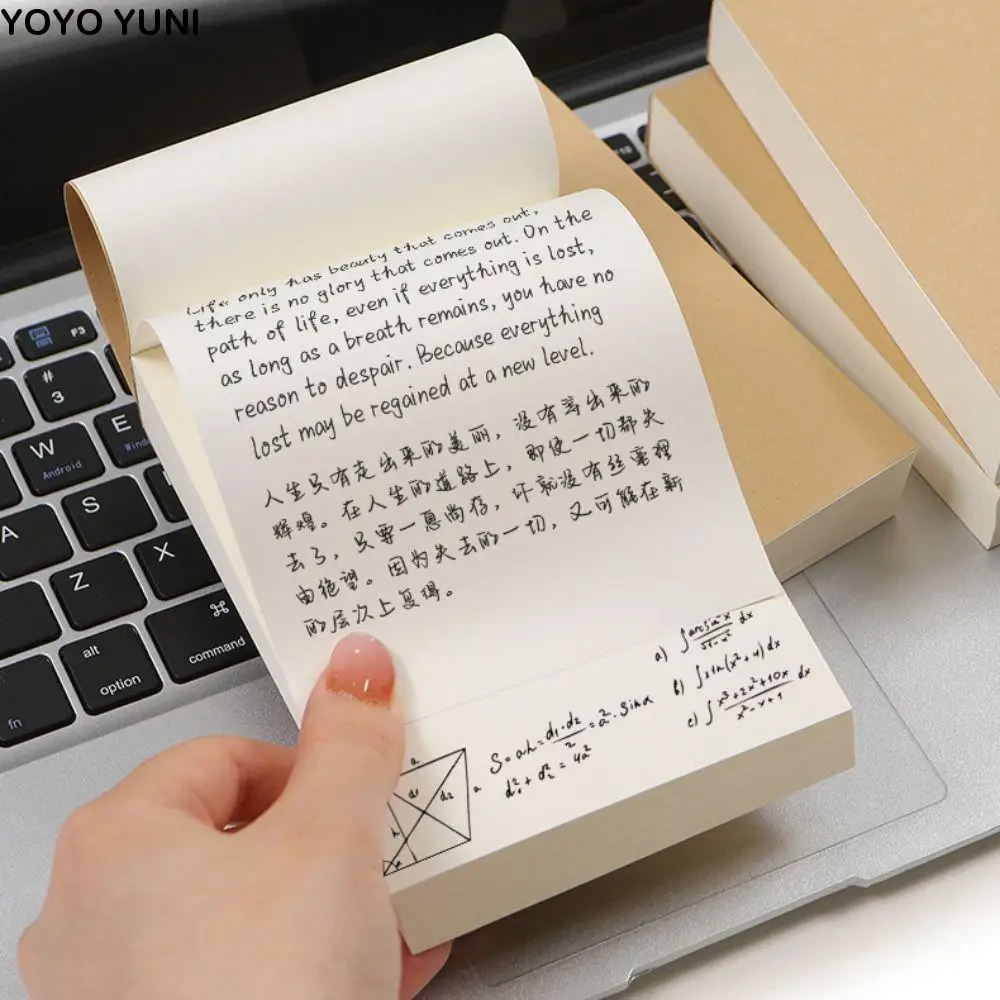 YOYO YUNI
Life only has beauty that comes out,
there is no glory that comes out. On the
path of life, even if everything is lost,
as long as a breath remains, you have no
reason to despair. Because everything
lost may be regained at a new level.
人生只有走出来的美丽，没有等出来的
辉煌。在人生的道路上，即使一切都失
去了，只要一息尚存，你就没有丝毫理
由绝望。因为失去的一切，又可能在新
的层次上复得。
a) ∫ arcsin x / √1-x² dx
b) ∫ x ln(x²+4) dx
c) ∫ x³+2x²+10x / x²-x+1 dx
S=ah= d₁·d₂ / 2 = a²·sinα
d₁²+d₂²=4a²
a
a
d₂
h
F3
#
3
W
Android
E
A
S
Z
X
⌘
command
alt
option
fn